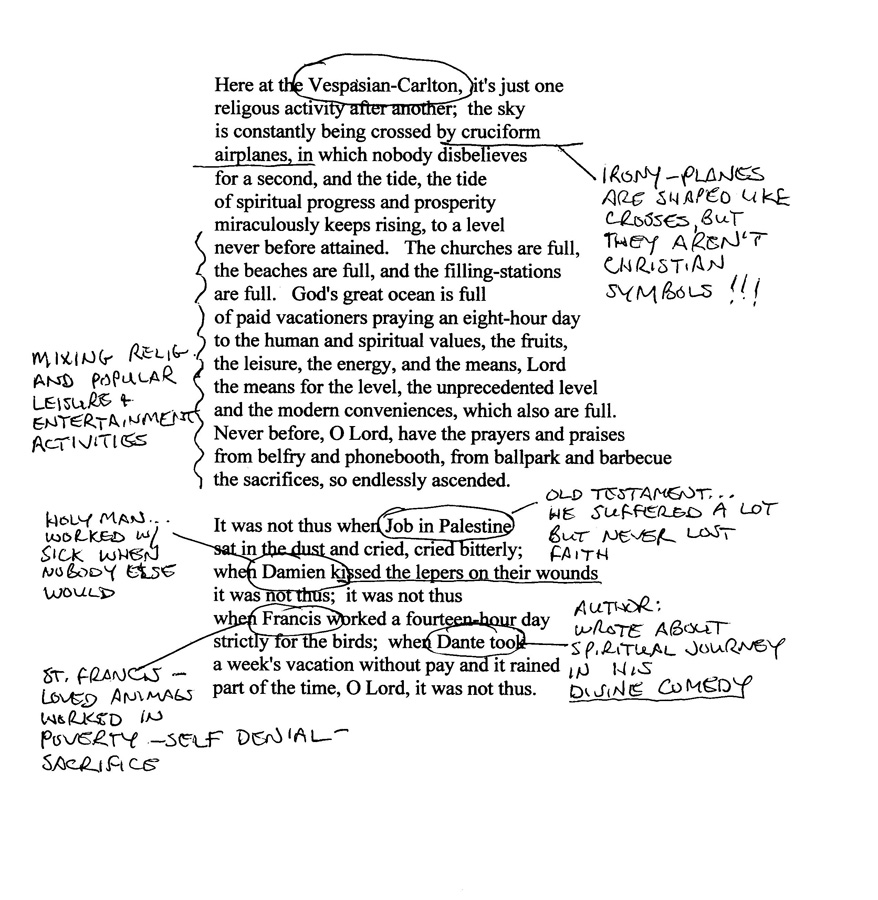 Here at the Vespasian-Carlton, it's just one
religous activity after another;  the sky
is constantly being crossed by cruciform
airplanes, in which nobody disbelieves
for a second, and the tide, the tide
of spiritual progress and prosperity
miraculously keeps rising, to a level
never before attained.   The churches are full,
the beaches are full, and the filling-stations
are full.   God's great ocean is full
of paid vacationers praying an eight-hour day
to the human and spiritual values, the fruits,
the leisure, the energy, and the means, Lord
the means for the level, the unprecedented level
and the modern conveniences, which also are full.
Never before, O Lord, have the prayers and praises
from belfry and phonebooth, from ballpark and barbecue
the sacrifices, so endlessly ascended.
IRONY-PLANES
ARE SHAPED LIKE
CROSSES, BUT
THEY AREN'T
CHRISTIAN
SYMBOLS !!!
MIXING RELIG.
AND POPULAR
LEISURE +
ENTERTAINMENT
ACTIVITIES
It was not thus when Job in Palestine
sat in the dust and cried, cried bitterly;
when Damien kissed the lepers on their wounds
it was not thus;  it was not thus
when Francis worked a fourteen-hour day
strictly for the birds;  when Dante took
a week's vacation without pay and it rained
part of the time, O Lord, it was not thus.
OLD TESTAMENT...
HE SUFFERED A LOT
BUT NEVER LOST
FAITH
HOLY MAN...
WORKED W/
SICK WHEN
NOBODY ELSE
WOULD
AUTHOR:
WROTE ABOUT
SPIRITUAL JOURNEY
IN HIS
DIVINE COMEDY
ST. FRANCIS -
LOVED ANIMALS
WORKED IN
POVERTY -SELF DENIAL-
SACRIFICE